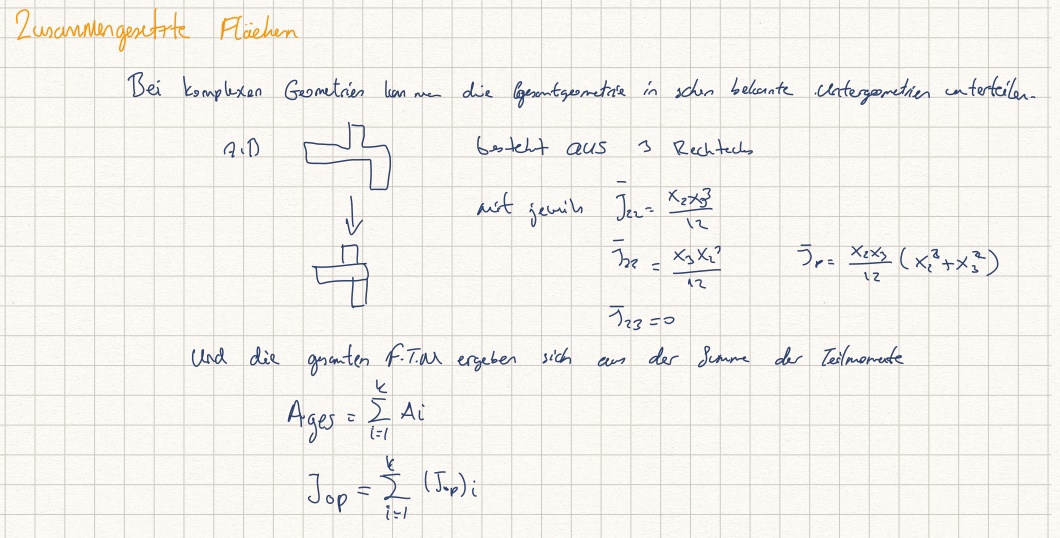 Zusammengesetzte Flächen
Bei komplexen Geometrien kann man die Gesamtgeometrie in schon bekannte Untergeometrien unterteilen.
z.B besteht aus 3 Rechtecks
mit jeweils J̅₂₂ = x₂x₃³/12
J̅₃₃ = x₃x₂³/12 J̅ₚ = x₂x₃/12 (x₂² + x₃²)
J̅₂₃ = 0
Und die gesamten F.T.M ergeben sich aus der Summe der Teilmomente
A_ges = Σ_{i=1}^{k} A_i
J_op = Σ_{i=1}^{k} (J_op)_i